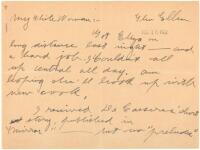 My White Woman:- Glen Ellen
Got Eliza on
long distance last night — and
a hard job. I couldn't call
up central all day. am
hoping she'll hook up with
new cook.
I received De Casseres' short
story, published in
"Mirror" — but no "prelude"